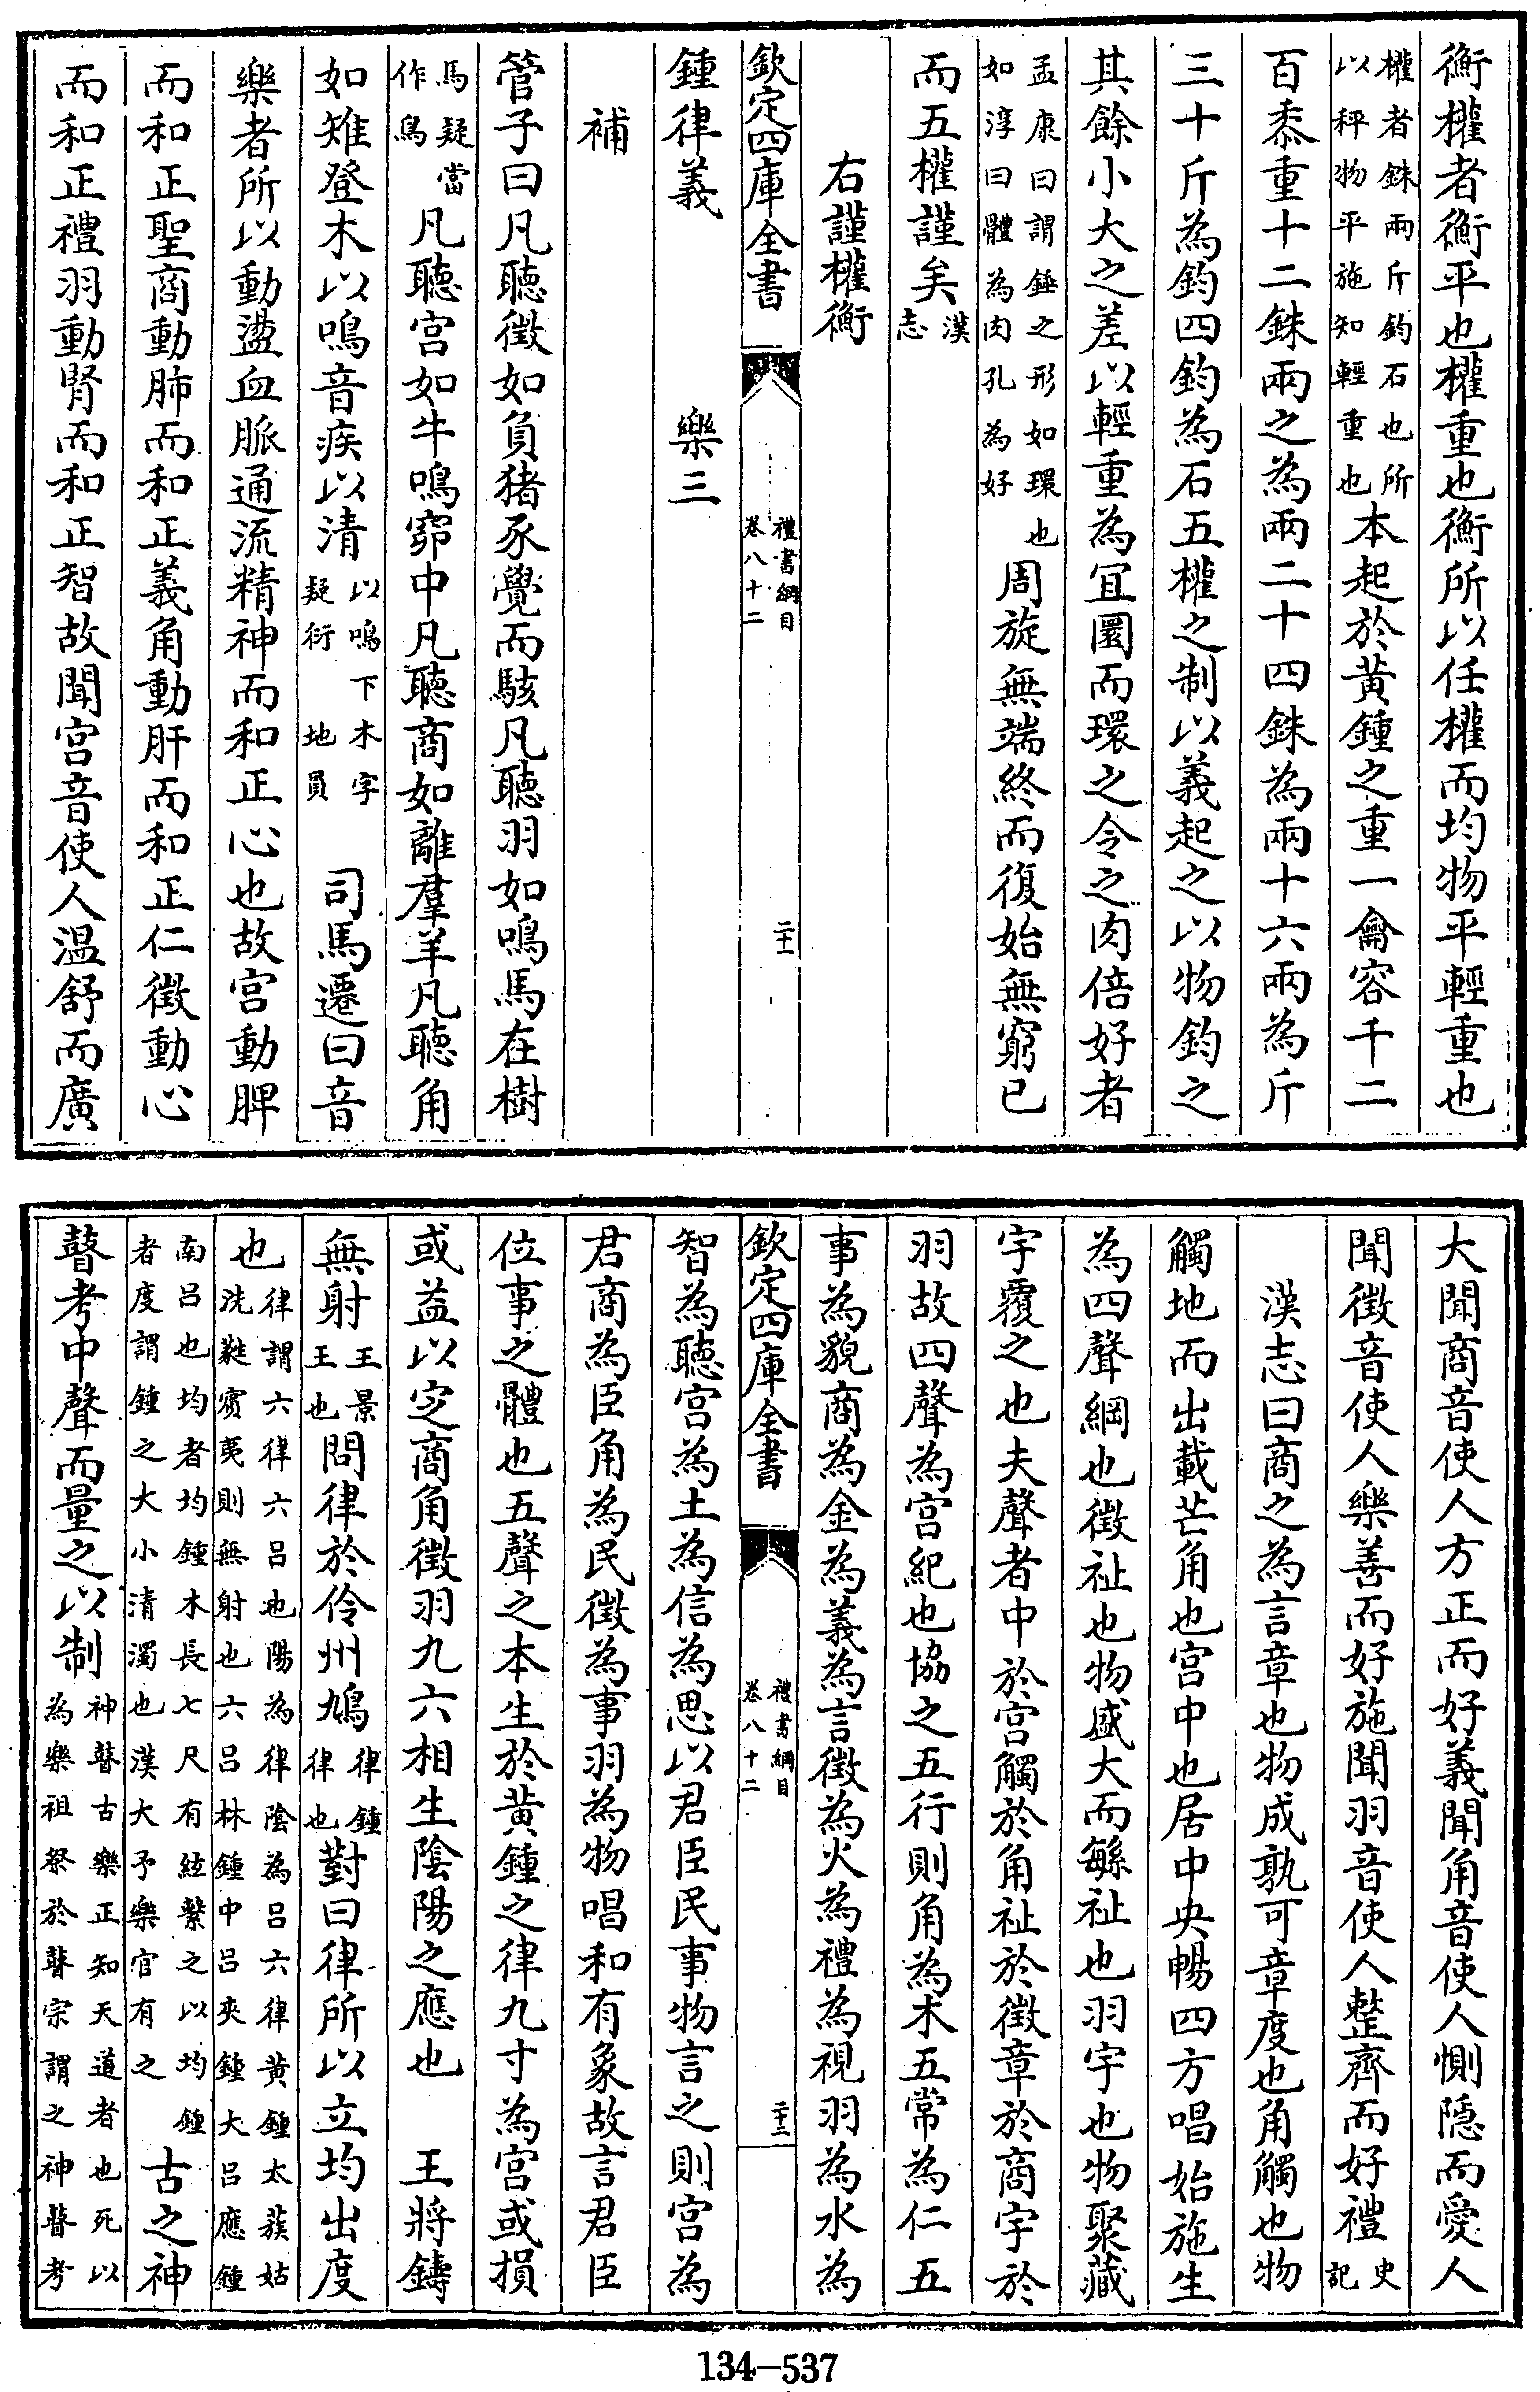 衡權者衡平也權重也衡所以任權而均物平輕重也
權者銖兩斤鈞石也所以秤物平施知輕重也本起於黄鍾之重一龠容千二
百黍重十二銖兩之為兩二十四銖為兩十六兩為斤
三十斤為鈞四鈞為石五權之制以義起之以物鈞之
其餘小大之差以輕重為宜圜而環之令之肉倍好者
孟康曰謂錘之形如環也如淳曰體為肉孔為好周旋無端終而復始無窮已
而五權謹矣漢志
右謹權衡
欽定四庫全書 禮書綱目卷八十二 二十一
鍾律義 樂三
補
管子曰凡聽徵如負猪豕覺而駭凡聽羽如鳴馬在樹
馬疑當作鳥凡聽宫如牛鳴窌中凡聽商如離羣羊凡聽角
如雉登木以鳴音疾以清以鳴下木字疑衍地員 司馬遷曰音
樂者所以動盪血脈通流精神而和正心也故宫動脾
而和正聖商動肺而和正義角動肝而和正仁徵動心
而和正禮羽動腎而和正智故聞宫音使人温舒而廣
大聞商音使人方正而好義聞角音使人惻隱而愛人
聞徵音使人樂善而好施聞羽音使人整齊而好禮史記
漢志曰商之為言章也物成孰可章度也角觸也物
觸地而出載芒角也宫中也居中央暢四方唱始施生
為四聲綱也徵祉也物盛大而繇祉也羽宇也物聚藏
宇覆之也夫聲者中於宫觸於角祉於徵章於商宇於
羽故四聲為宫紀也協之五行則角為木五常為仁五
事為貌商為金為義為言徵為火為禮為視羽為水為
欽定四庫全書 禮書綱目卷八十二 二十二
智為聽宫為土為信為思以君臣民事物言之則宫為
君商為臣角為民徵為事羽為物唱和有象故言君臣
位事之體也五聲之本生於黄鍾之律九寸為宫或損
或益以定商角徵羽九六相生陰陽之應也 王將鑄
無射王景王也問律於伶州鳩律鍾律也對曰律所以立均出度
也律謂六律六呂也陽為律陰為呂六律黄鍾太蔟姑洗蕤賓夷則無射也六呂林鍾中呂夾鍾大呂應鍾
南呂也均者均鍾木長七尺有絃繫之以均鍾者度謂鍾之大小清濁也漢大予樂官有之古之神
瞽考中聲而量之以制神瞽古樂正知天道者也死以為樂祖祭於瞽宗謂之神瞽考
134-537